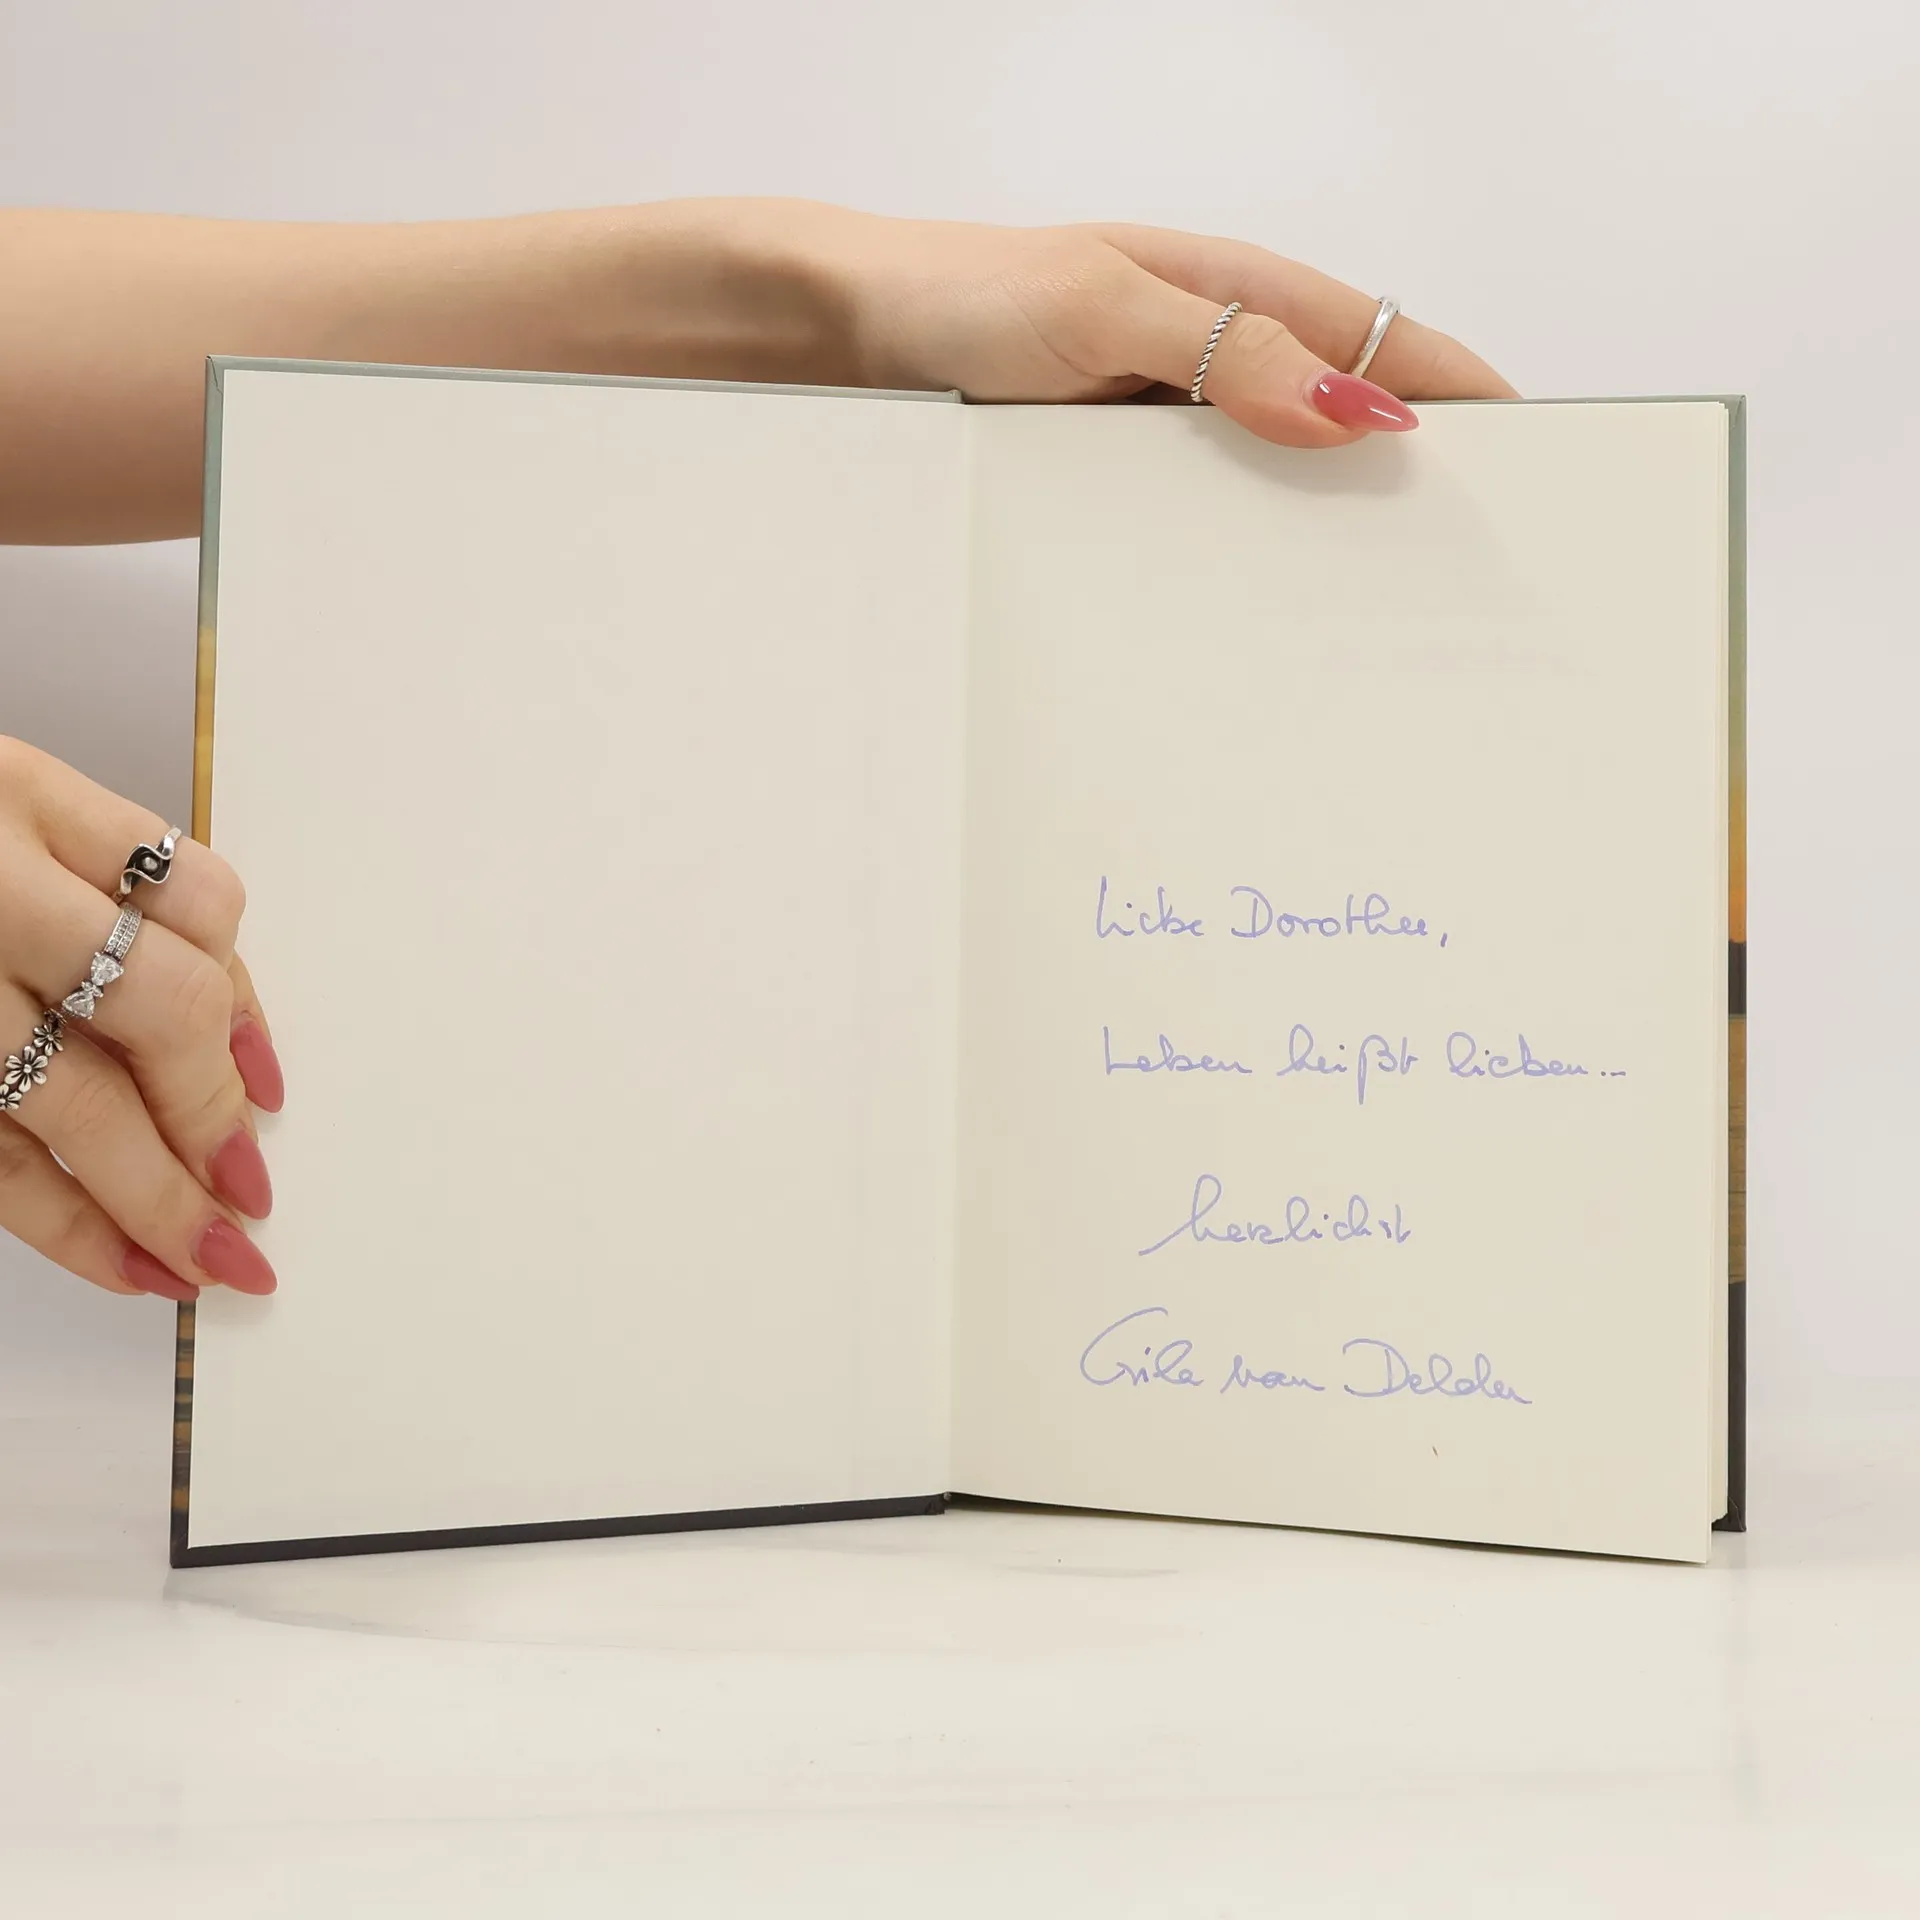 Liebe Dorothee,
Leben heißt lieben...
herzlichst
Gila van Delden